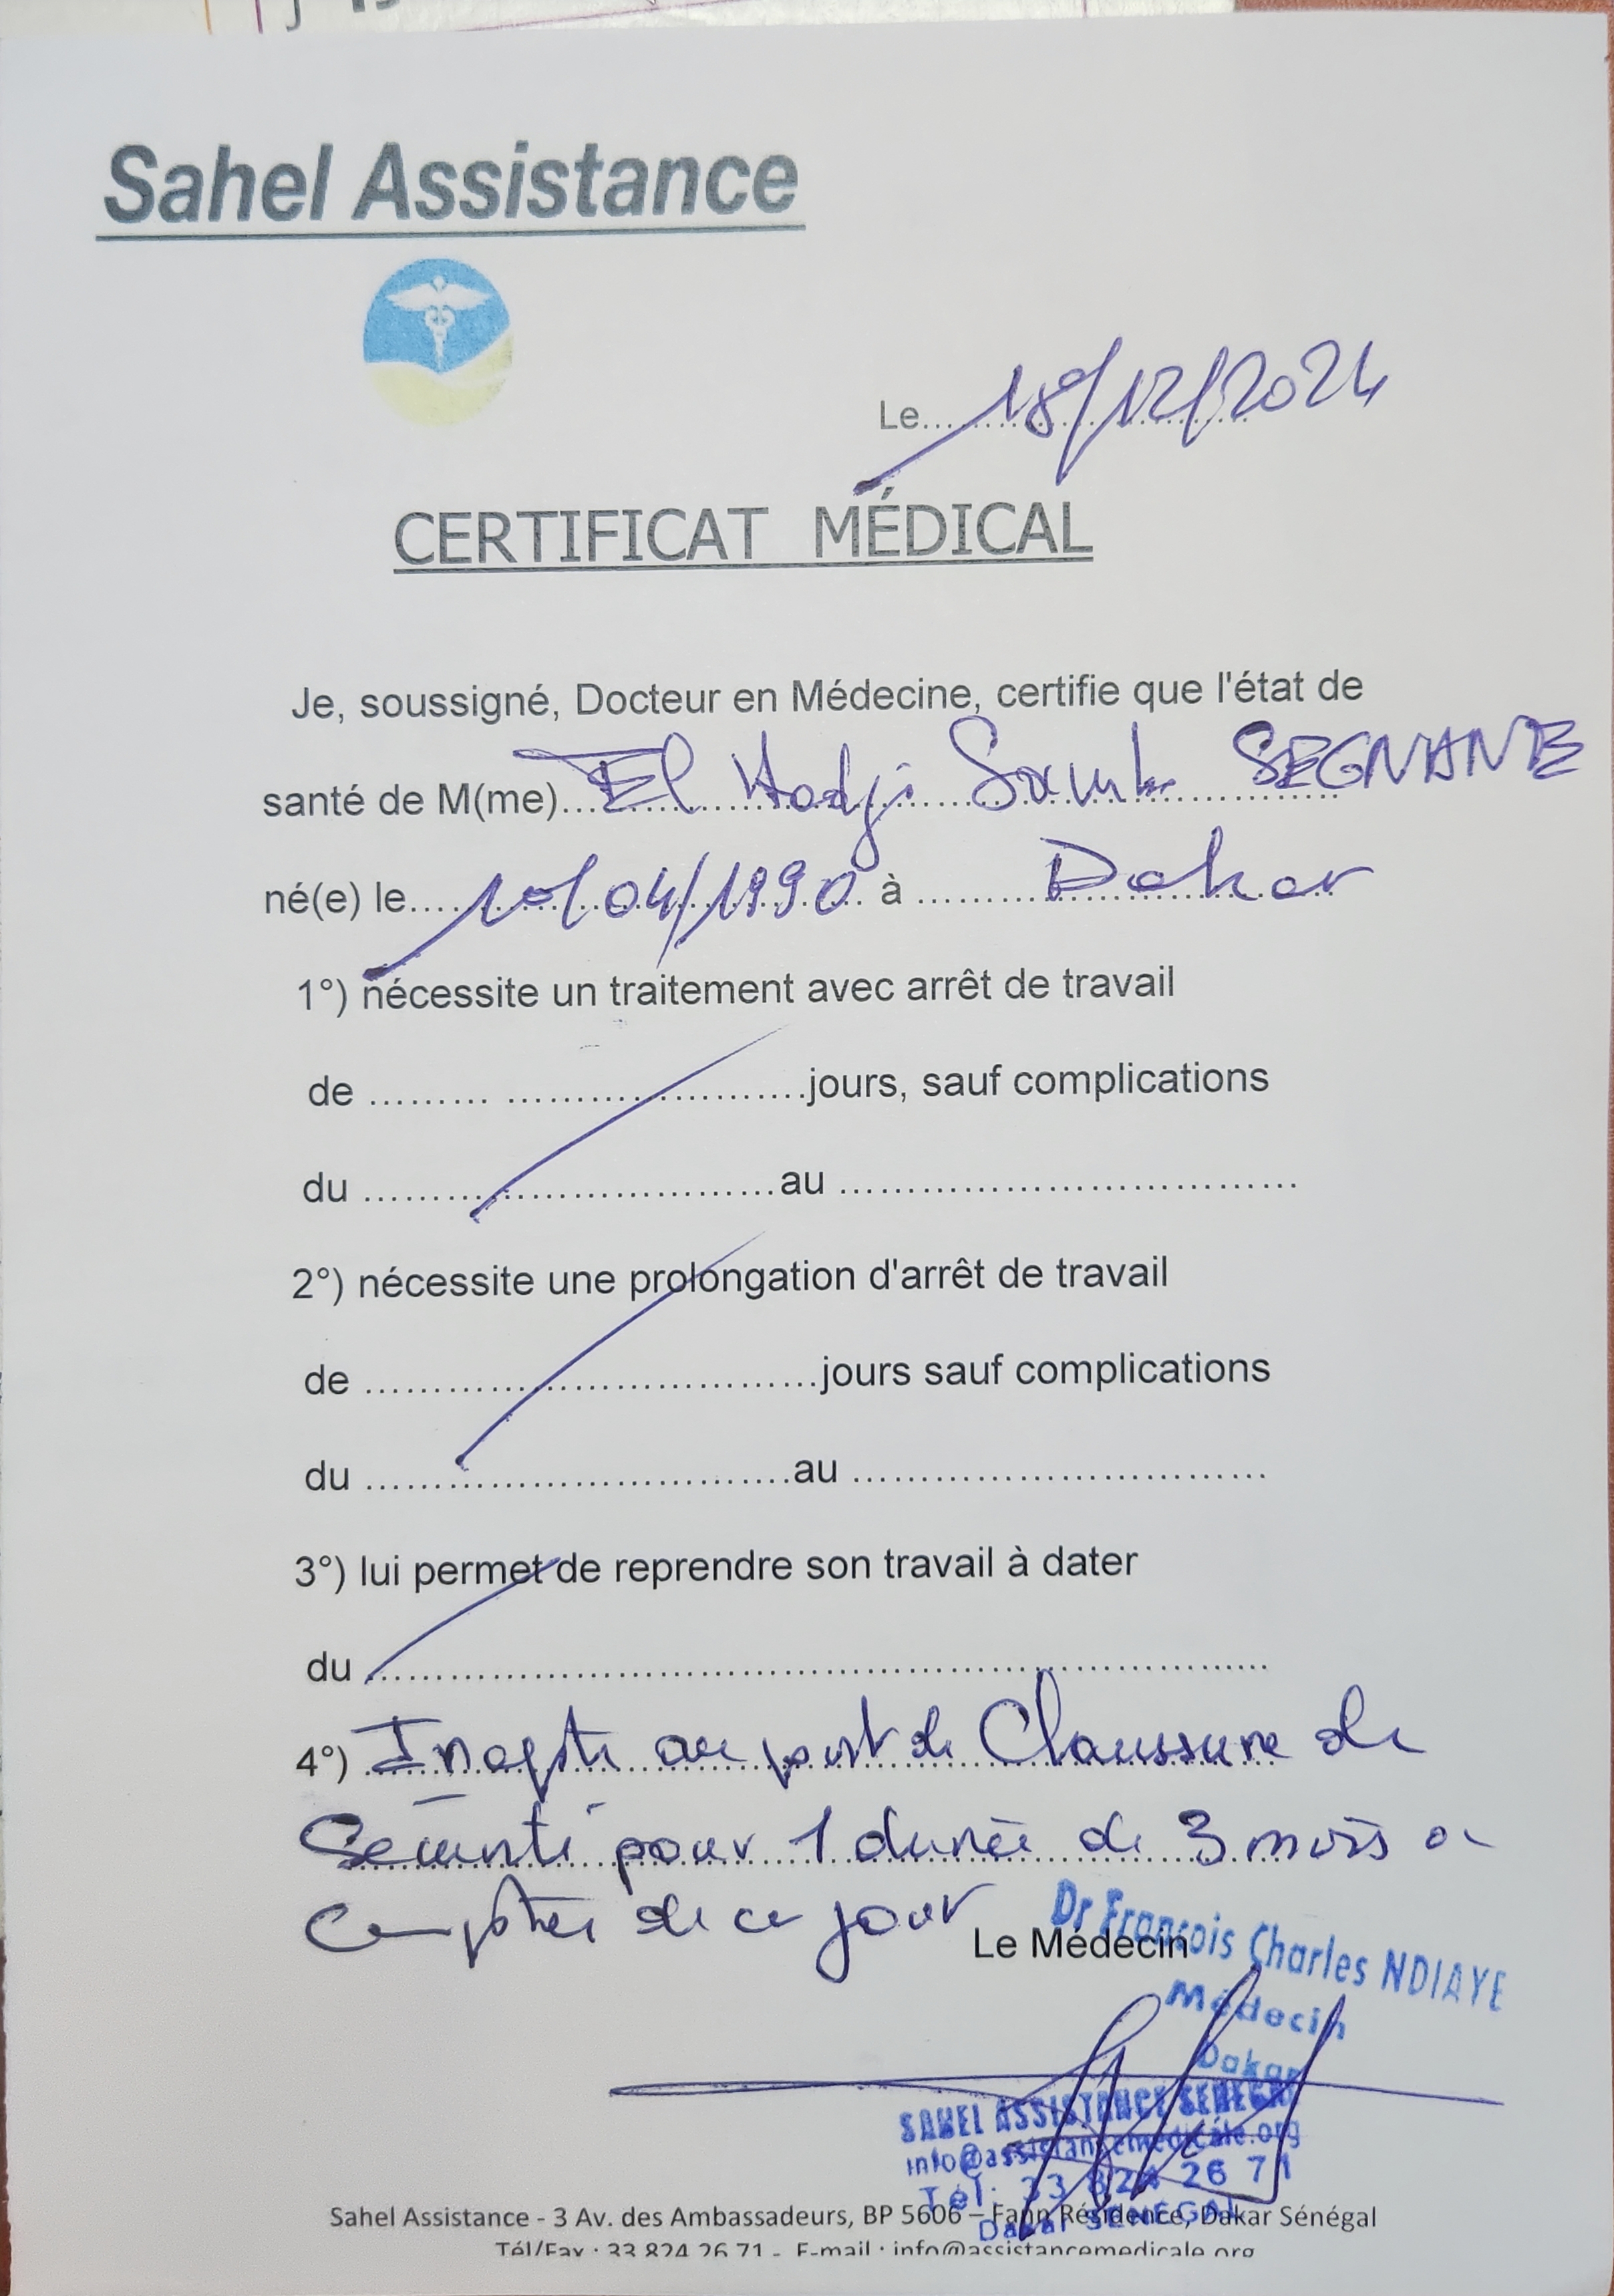 Sahel Assistance
Le.......18/12/2024
CERTIFICAT MÉDICAL
Je, soussigné, Docteur en Médecine, certifie que l'état de
santé de M(me)... El Hadji Samba SEGNANE
né(e) le.... /04/1990 à ......... Dakar
1°) nécessite un traitement avec arrêt de travail
de ......... ..........................jours, sauf complications
du ....................................au ........................................
2°) nécessite une prolongation d'arrêt de travail
de ........................................jours sauf complications
du .....................................au ....................................
3°) lui permet de reprendre son travail à dater
du ................................................................................
4°) Inapte au port de Chaussure de
Sécurité pour 1 durée de 3 mois a
compter de ce jour
Le Médecin
Dr François Charles NDIAYE
Médecin
Dakar
SAHEL ASSISTANCE SENEGAL
info@assistancemedicale.org
Tél: 33 824 26 71
Dakar SENEGAL
Sahel Assistance - 3 Av. des Ambassadeurs, BP 5606 – Fann Résidence, Dakar Sénégal
Tél/Fax : 33 824 26 71 - E-mail : info@assistancemedicale.org